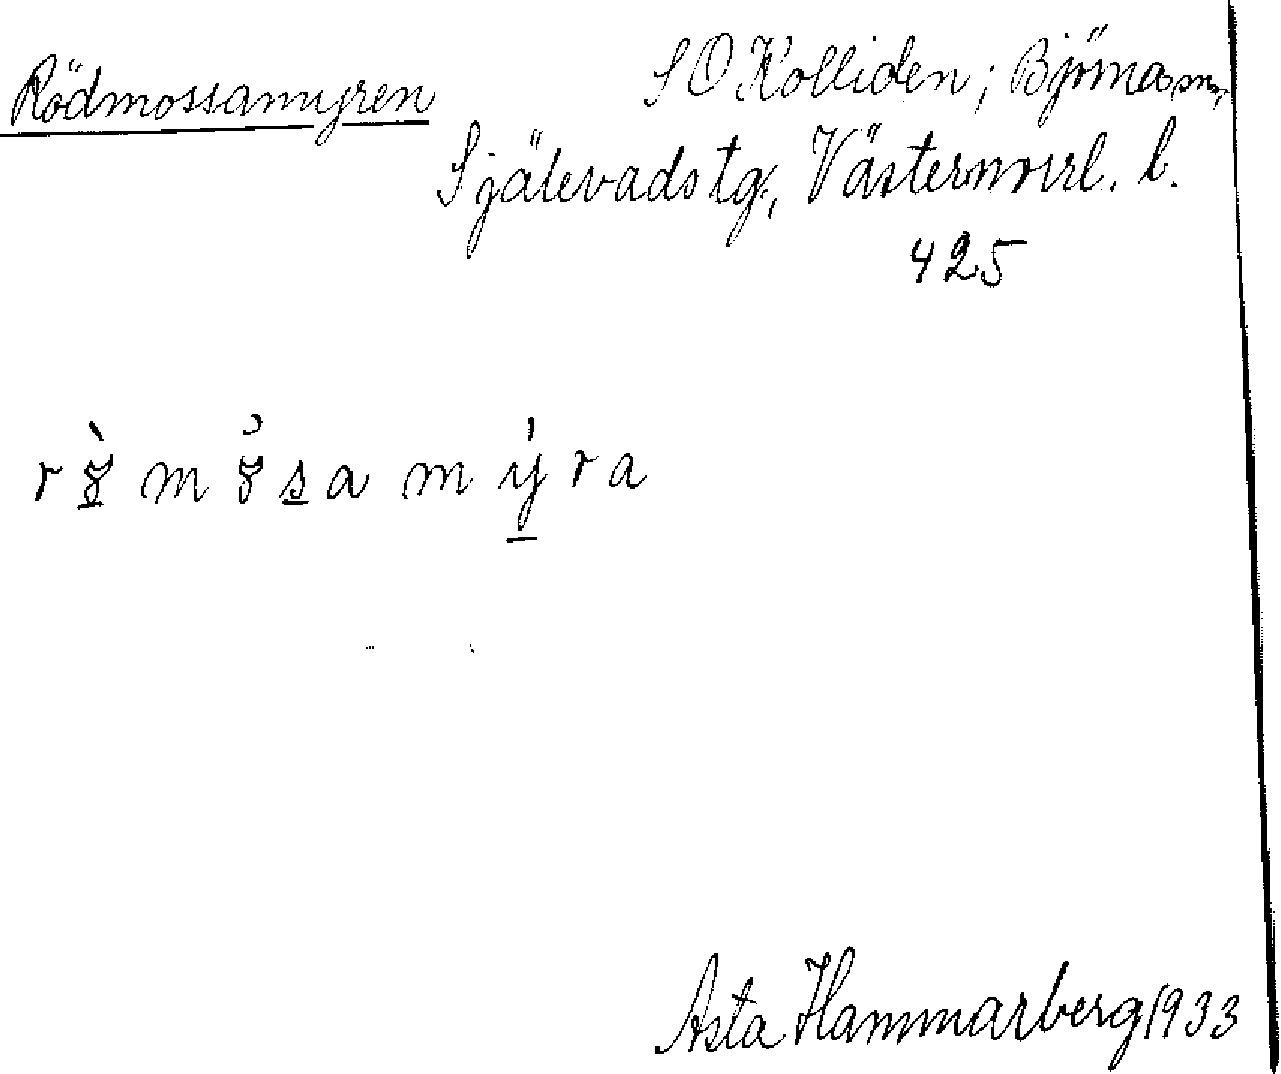 Rödmossamyren
SO Kolliden; Björna sn,
Själevads tg., Västernorrl. l.
425
r ɣ̠̀ m ɣ̉ s̠ a m ý̠ r a
Asta Hammarberg 1933